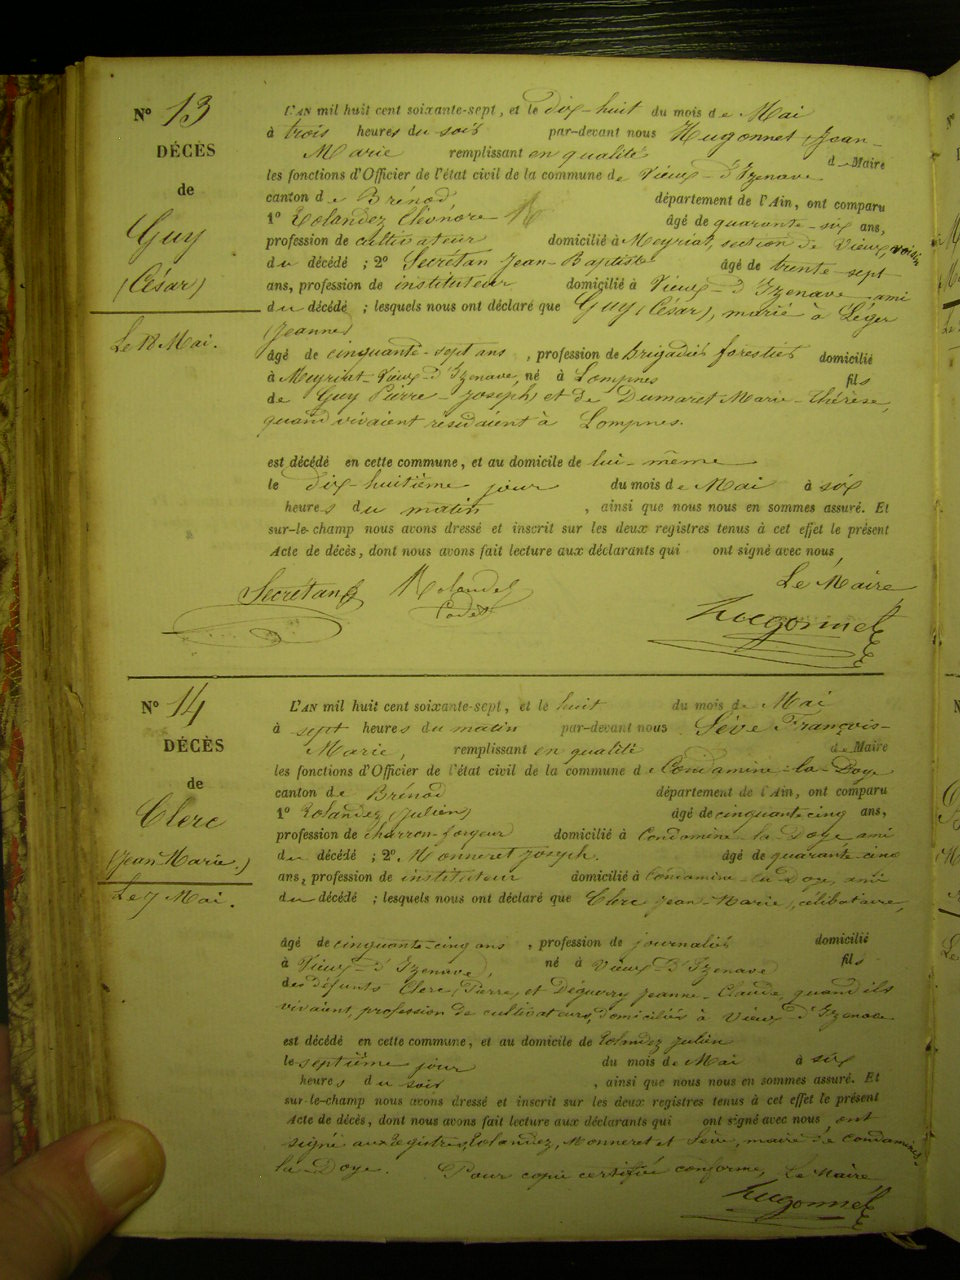 N° 13
DÉCÈS
de
Guy
(César)
Le 18 Mai.
L'AN mil huit cent soixante-sept, et le dix-huit du mois de Mai
à trois heures du soir par-devant nous Hugonnet Jean-
Marie remplissant en qualité de Maire
les fonctions d'Officier de l'état civil de la commune de Vieux-d'Izenave
canton de Brénod, département de l'Ain, ont comparu
1° Rolandez Eléonore âgé de quarante-six ans,
profession de cultivateur domicilié à Meyriat, section de Vieux, voisin
du décédé ; 2° Secretan Jean-Baptiste âgé de trente-sept
ans, profession de instituteur domicilié à Vieux-d'Izenave ami
du décédé ; lesquels nous ont déclaré que Guy (César), marié à Léger
(Jeanne)
âgé de cinquante-sept ans , profession de Brigadier forestier domicilié
à Meyriat-Vieux-d'Izenave, né à Lompnes fils
de Guy Pierre-Joseph et de Dumaret Marie-Thérèse,
quand vivaient résidaient à Lompnes.
est décédé en cette commune, et au domicile de lui-même
le dix-huitième jour du mois de Mai à six
heures du matin , ainsi que nous nous en sommes assuré. Et
sur-le-champ nous avons dressé et inscrit sur les deux registres tenus à cet effet le présent
Acte de décès, dont nous avons fait lecture aux déclarants qui ont signé avec nous
Le Maire
Secretan Rolandez
Cadet
Hugonnet
N° 14
DÉCÈS
de
Clerc
(Jean Marie.)
Le 7 Mai.
L'AN mil huit cent soixante-sept, et le huit du mois de Mai
à sept heures du matin par-devant nous Sève François-
Marie, remplissant en qualité de Maire
les fonctions d'Officier de l'état civil de la commune de Condamine-la-Doye
canton de Brénod département de l'Ain, ont comparu
1° Rolandez (Julien) âgé de cinquante cinq ans,
profession de charron-forgeur domicilié à Condamine-la-Doye ami
du décédé ; 2° Monneret Joseph. âgé de quarante-cinq
ans, profession de instituteur domicilié à Condamine-la-Doye, ami
du décédé ; lesquels nous ont déclaré que Clerc Jean-Marie, célibataire,
âgé de cinquante-cinq ans , profession de journalier domicilié
à Vieux-d'Izenave, né à Vieux-D'Izenave fils
des défunts Clerc, Pierre, et Déguerry Jeanne-Claude, quand ils
vivaient, profession de cultivateurs, domiciliés à Vieux-d'Izenave
est décédé en cette commune, et au domicile de Rolandez Julien
le septième jour du mois de Mai à six
heures du soir , ainsi que nous nous en sommes assuré. Et
sur-le-champ nous avons dressé et inscrit sur les deux registres tenus à cet effet le présent
Acte de décès, dont nous avons fait lecture aux déclarants qui ont signé avec nous ont
signé aux registres, Rolandez, Monneret et Sève, maire de Condamine-
la-Doye. Pour copie certifiée conforme, Le Maire
Hugonnet